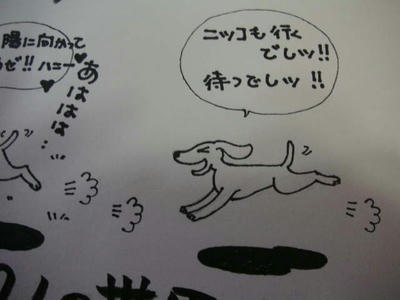 ニッコも行く
でしッ!!
待つでしッ!!
陽に向かって
ぜ!!ハニー♥
あはははは‥
の世界